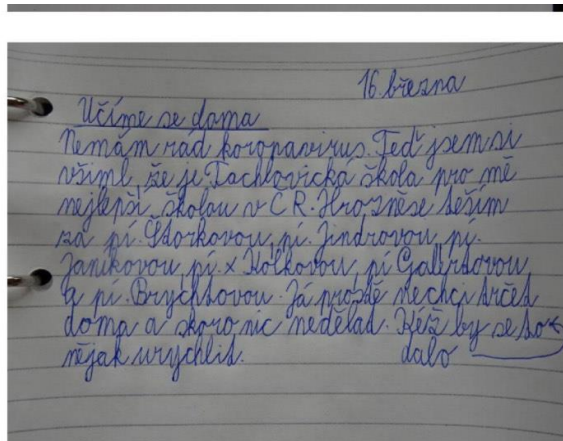 16. března
Učíme se doma
Nemám rád koropavirus. Teď jsem si
všiml, že je Tachlovická škola pro mě
nejlepší školou v ČR. Hrozně se těším
za pí. Štorkovou, pí. Jindrovou, pí.
Janíkovou, pí. x Holkovou, pí Gallertovou
a pí. Brychtovou. Já prostě nechci trčet
doma a skoro nic nedělat. Kéž by se to
nějak urychlit. dalo